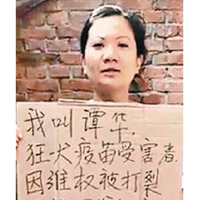 我叫谭华，
狂犬疫苗受害者
因维权被打裂